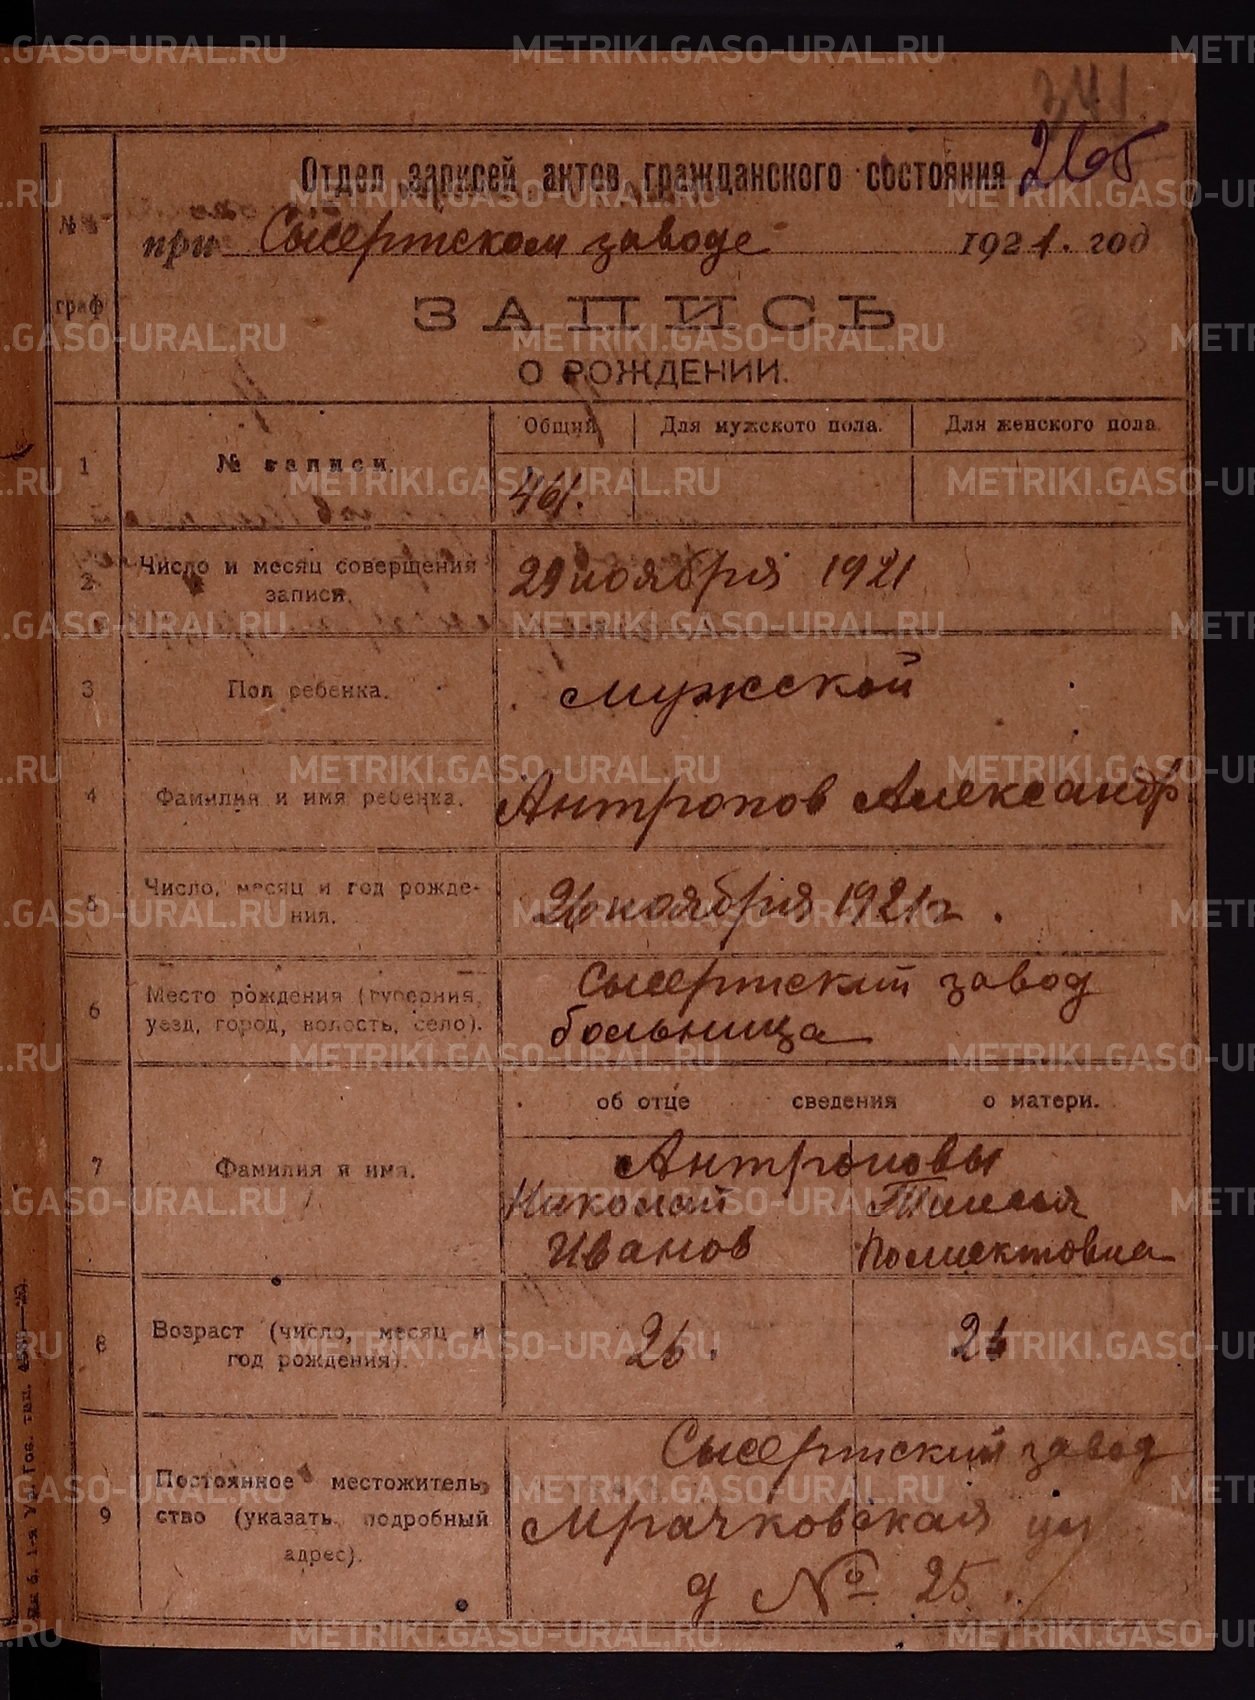 341.
265
Отдел записей актов гражданского состояния
при Сысертском заводе 1921. год
№№
граф
ЗАПИСЬ
О РОЖДЕНИИ.
1 № записи. Общий Для мужского пола. Для женского пола.
461.
2 Число и месяц совершения
записи.
29 ноября 1921
3 Пол ребенка. мужской
4 Фамилия и имя ребенка. Антропов Александр
5 Число, месяц и год рожде-
ния.
26 ноября 1921 г.
6 Место рождения (губерния,
уезд, город, волость, село).
Сысертский завод
больница
об отце сведения о матери.
7 Фамилия и имя.
Антроповы
Николай Таисья
Иванов Полиектовна
8 Возраст (число, месяц и
год рождения).
26. 26
9 Постоянное местожитель-
ство (указать подробный
адрес).
Сысертский завод
Мрачковская ул
д № 25.
METRIKI.GASO-URAL.RU